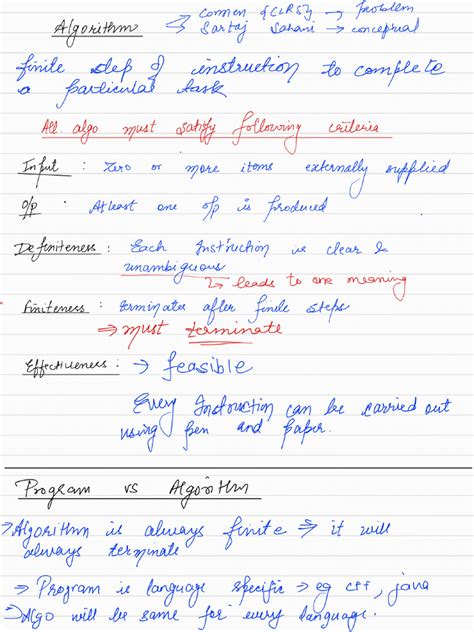 Algorithm → Cormen {CLRS} → Problem
→ Sartaj Sahani → conceptual
finite step of instruction to complete
a particular task
All algo must satisfy following criteria
Input : Zero or more items externally supplied
o/p : Atleast one o/p is produced
Definiteness : Each Instruction is clear &
unambiguous
↳ leads to one meaning
Finiteness : terminates after finite steps
⇒ must terminate
Effectiveness : → feasible
Every Instruction can be carried out
using pen and paper.
Program vs Algorithm
→ Algorithm is always finite ⇒ it will
always terminate
⇒ Program is language specific ⇒ eg c++, java
⇒ Algo will be same for every language.